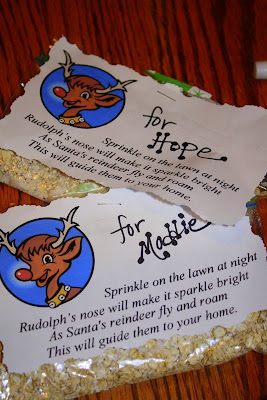 for
Hope
Sprinkle on the lawn at night
Rudolph's nose will make it sparkle bright
As Santa's reindeer fly and roam
This will guide them to your home.
for
Maddie
Sprinkle on the lawn at night
Rudolph's nose will make it sparkle bright
As Santa's reindeer fly and roam
This will guide them to your home.